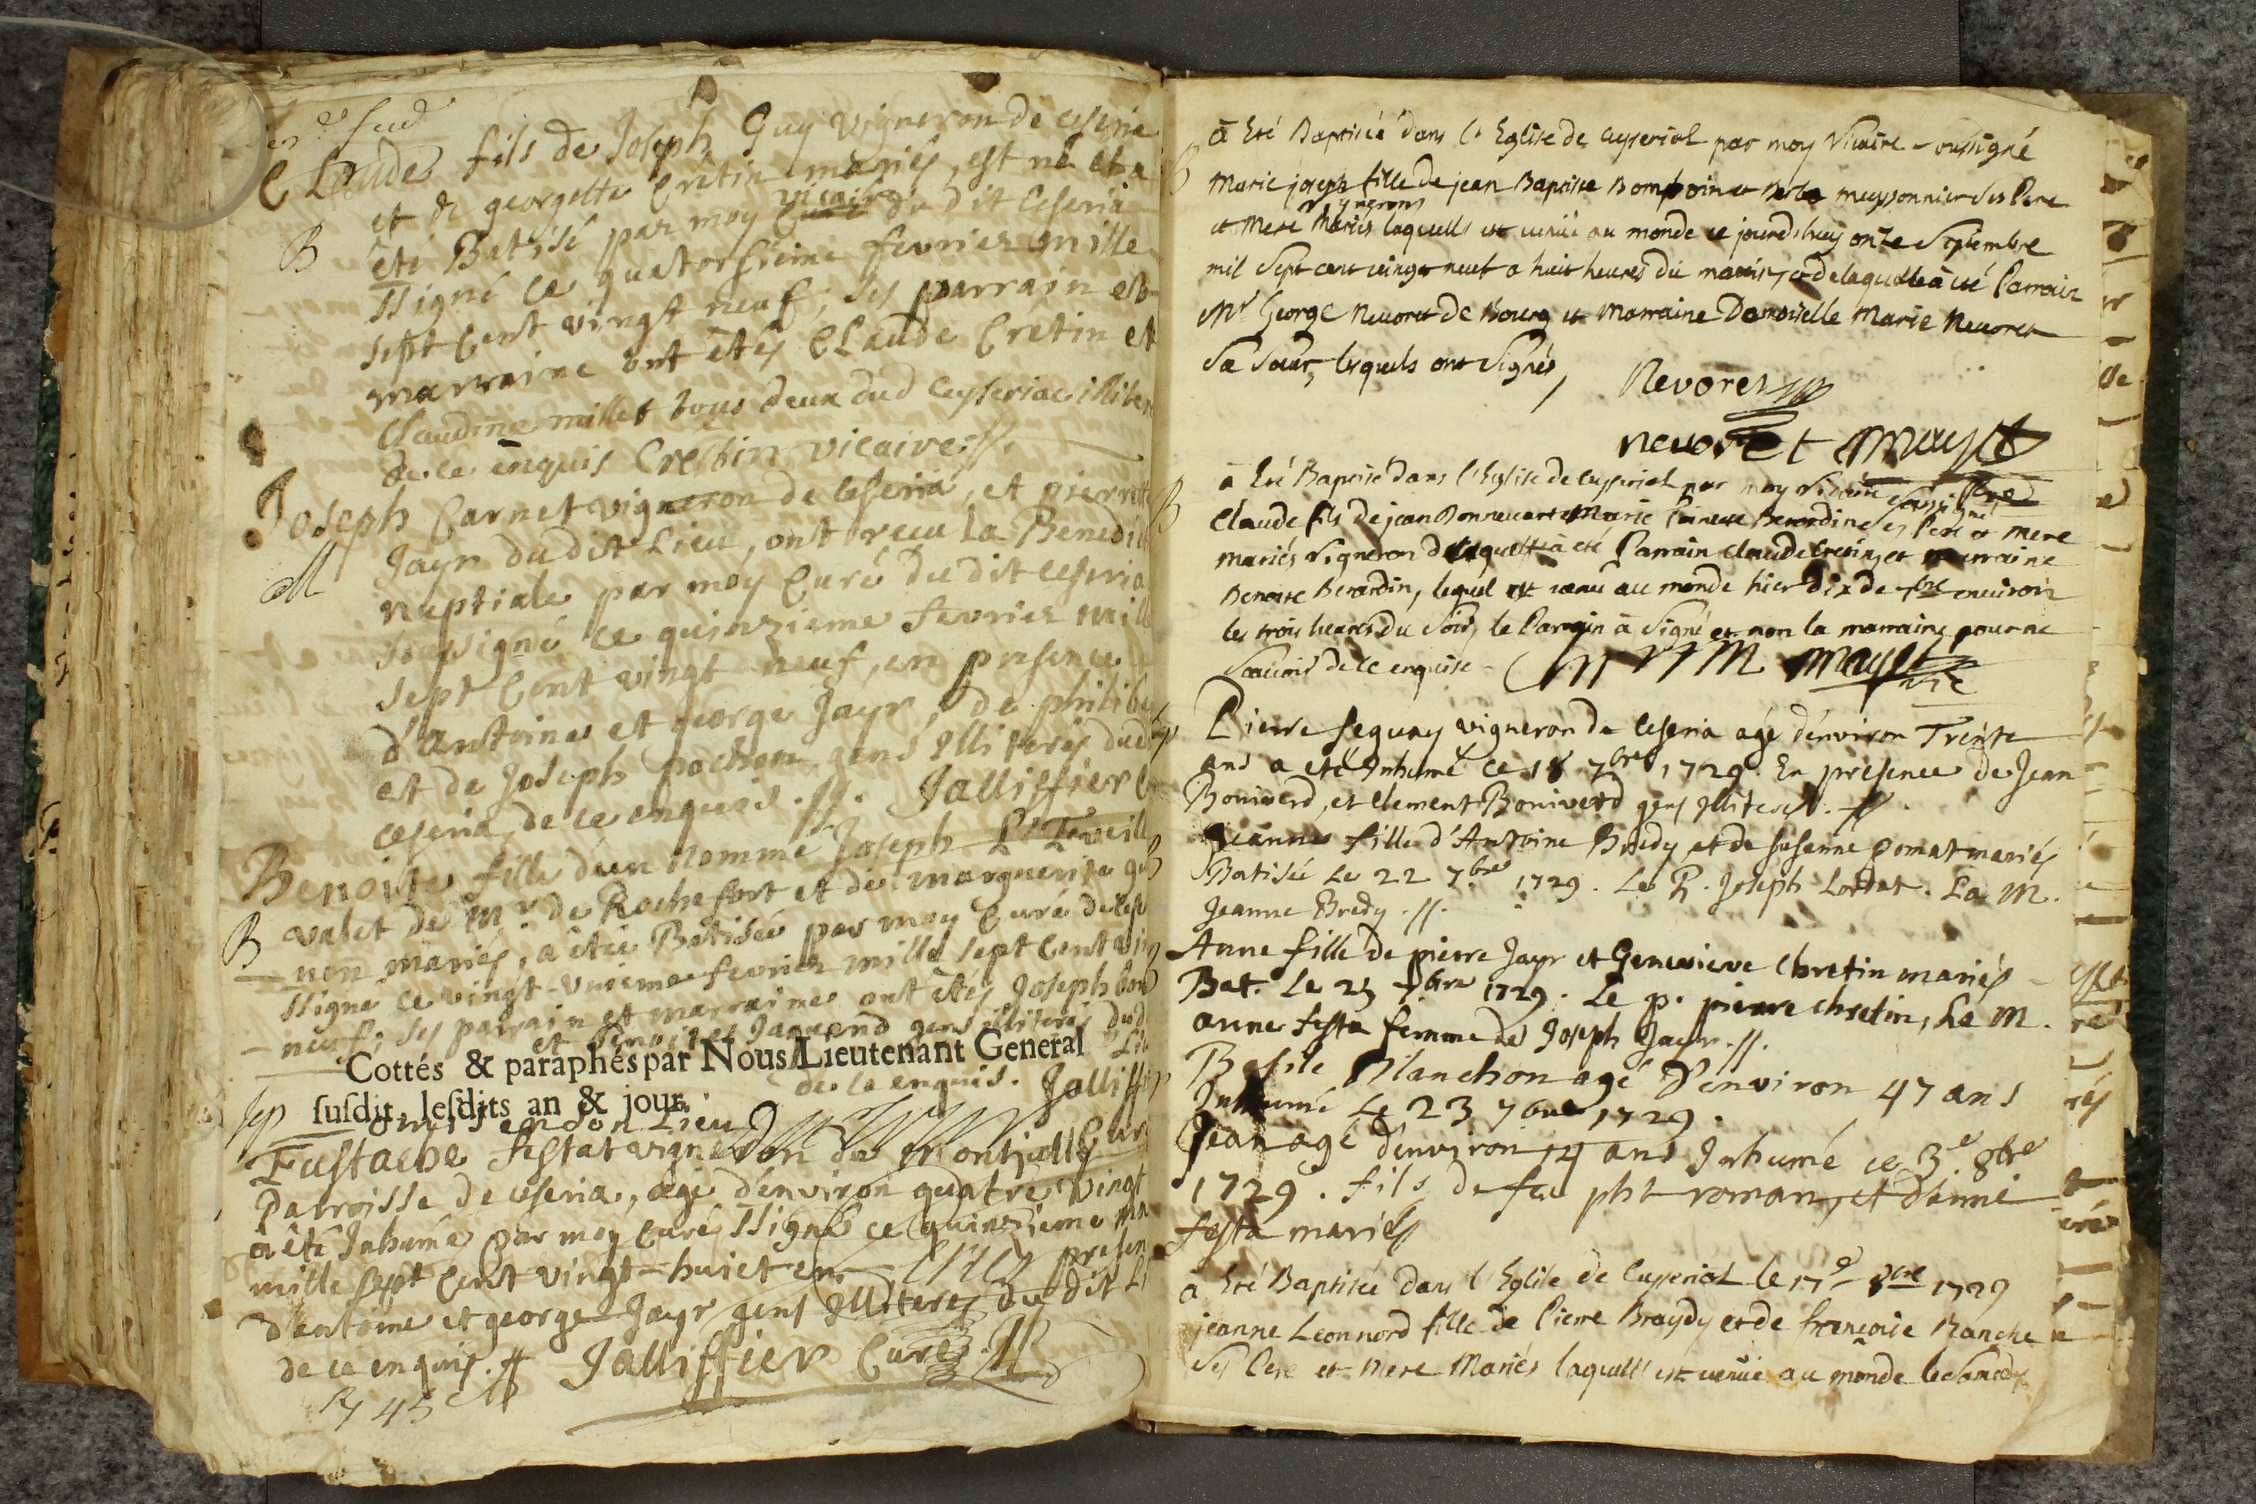 Claude fils de Joseph Guy vigneron de ceseria
et de georgette Cretin mariés, est né et a
vicaire
B été Batisé par moy Curé du dit Ceseria
ssigné ce quatorsiéme fevrier mille
sept Cent vingt neuf; ses parrain et
marraine ont étés Claude Cretin et
Claudine millet tous deux dud Ceyseriac illiter
de ce enquis Cretin vicaire.
Joseph Carnet vigneron de Ceseria, et pierrette
M Jayr du dit Lieu, ont recu la Benedi
nuptiale par moy Curé du dit Ceseria
soussigné ce quinzieme fevrier mill
sept Cent vingt neuf, en presence
d'Antoine et george Jayr, de philibe
et de Joseph pochon gens Illiterés dud
ceseria, de ce enquis. Jalliffier
Benoite fille d'un nommé Joseph
B valet de Mr. de Rochefort et de marguerite
non mariés, a étée Batisée par moy Curé de
ssigné ce vingt-unieme fevrier mille sept Cent vin
neuf; ses parrain et marraine ont étés Joseph
et Benoite Jaquend gens illiterés dud
Cottés & paraphés par Nous Lieutenant General
de ce enquis. Jalliff
susdit, lesdits an & jour.
Sep
Eustache Festat vigneron de Montjully
Parroisse de ceseria, agé d'environ quatre vingt
a été Inhumé par moy Curé ssigné ce quinzieme
mille sept Cent vingt-huict en presen
d'antoine et george Jayr gens Illiterés du dit
de ce enquis. Jalliffier Curé
à Eté Baptisée dans l'Eglise de Ceyseriat par moy Vicaire soussigné
B Marie joseph fille de jean Baptiste Bompoin et meyssonnier ses Pere
vignerons
et Mere Mariés laquelle est venüe au monde ce jourd'huy onze Septembre
mil Sept cent vingt neuf a huit heures du matin, et de laquelle à eté Parrain
Mr George Revoret de Bourg et Marraine Demoiselle Marie Revoret
Sa Sœur, lesquels ont Signés,
Revoret
revoret Mayet
B à Eté Baptisé dans l'Eglise de Ceyseriat par moy Vicaire soussigné
Claude fils de jean Bonnevert et Marie Berardin ses Pere et mere
mariés Vigneron duquel à eté Parrain Claude Cretin, et marraine
Benoite Berardin, lequel est venu au monde hier dix de 7bre environ
les trois heures du Soir, le Parrain à Signé et non la marraine pour ne
Sçavoir de ce enquise. Mayet
vic
Pierre Seguay vigneron de Ceseria agé d'environ Trente
ans a été Inhumé ce 18 7bre 1729. En presence de Jean
Boniverd, et Clement Boniverd gens Illiterés.
B Jeanne fille d'Antoine Bredy et de susanne pomat mariés
Batisée Le 22 7bre 1729. Le P. Joseph Lordet. La M.
Jeanne Bredy.
B Anne fille de pierre Jayr et Genevieve Chretin mariés
Bat. Le 23 7bre 1729. Le p. pierre Chretin, La M.
anne festa femme de Joseph Jayr.
Basile Blanchon agé d'environ 47 ans
Inhumé Le 23 7bre 1729.
Jean agé d'environ 14 ans Inhumé ce 3e. 8bre
1729. fils de feu pht roman, et d'anne
festa mariés
à Eté Baptisée dans l'Eglise de Ceyseriat le 17e 8bre 1729
jeanne Leonnord fille de Pierre Braydy et de françoise Ranche
Ses Pere et Mere Mariés laquelle est venüe au monde le Samedy